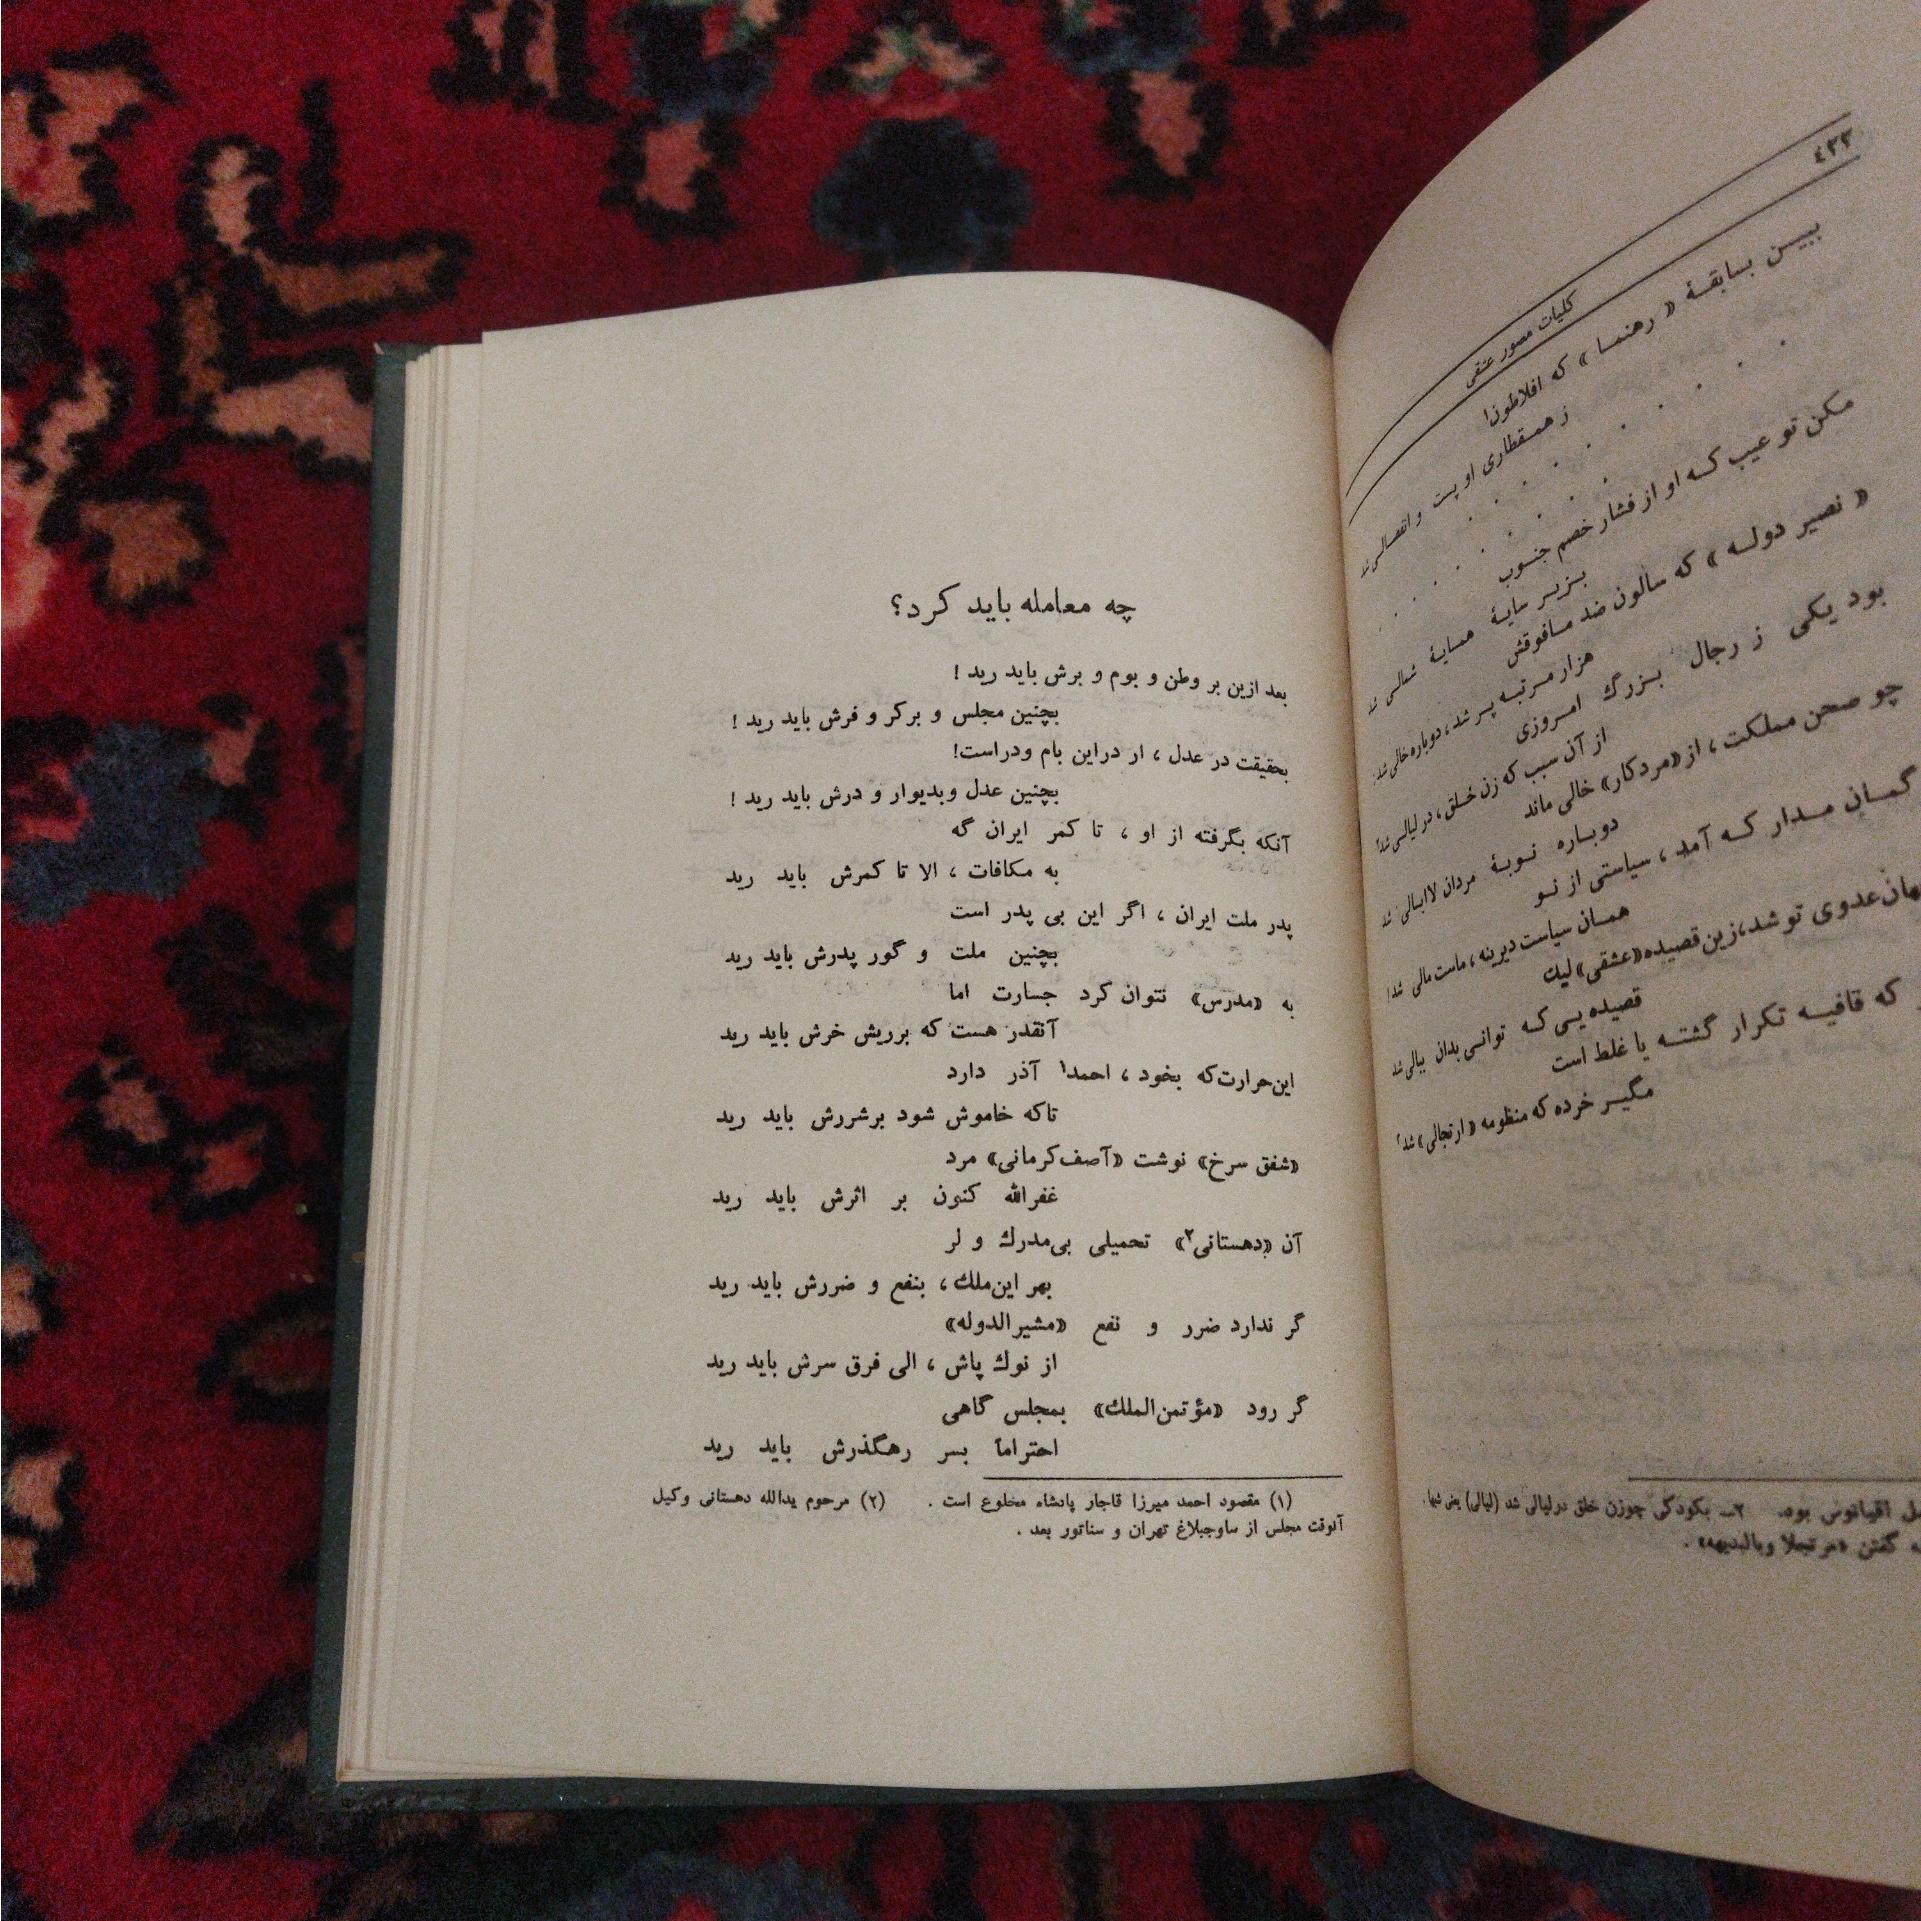 ۴۳۲
کلیات مصور عشقی
ببین بسابقهٔ «رهنما» که افلاطون!
ز همقطاری او پست و اتصالی شد
مکن تو عیب که او از فشار خصم جنوب
بزیر سایهٔ همسایهٔ شمالی شد
«نصیر دوله» که سالون ضد مافوقش
هزار مرتبه پر شد، دوباره خالی شد
بود یکی ز رجال بزرگ امروزی
از آن سبب که زن خلق، در لیالی شد
چو صحن مملکت، از «مردکار» خالی ماند
دوباره نوبهٔ مردان لاابالی شد
گمان مدار که آمد، سیاستی از نو
همان سیاست دیرینه، ماست مالی شد!
عدوی تو شد، زین قصیده «عشقی» لیك
قصیده‌یی که توانی بدان ببالی شد
که قافیه تکرار گشته یا غلط است
مگیر خرده که منظومه «ارتجالی» شد
اقیانوس بوده. ۲ــ بکودکی چوزن خلق درلیالی شد (لیالی) یعنی شبها.
گفتن «مرتجلا وبالبدیهه».
چه معامله باید کرد؟
بعد ازین بر وطن و بوم و برش باید رید !
بچنین مجلس و برکر و فرش باید رید !
بحقیقت در عدل ، ار دراین بام ودراست!
بچنین عدل وبدیوار و درش باید رید !
آنکه بگرفته از او ، تا کمر ایران گه
به مکافات ، الا تا کمرش باید رید
پدر ملت ایران ، اگر این بی پدر است
بچنین ملت و گور پدرش باید رید
به «مدرس» نتوان کرد جسارت اما
آنقدر هست که برریش خرش باید رید
این‌حرارت‌که بخود ، احمد۱ آذر دارد
تاکه خاموش شود برشررش باید رید
«شفق سرخ» نوشت «آصف‌کرمانی» مرد
غفرالله کنون بر اثرش باید رید
آن «دهستانی۲» تحمیلی بی‌مدرك و لر
بهر این‌ملك ، بنفع و ضررش باید رید
گر ندارد ضرر و نفع «مشیرالدوله»
از نوك پاش ، الی فرق سرش باید رید
گر رود «مؤتمن‌الملك» بمجلس گاهی
احتراماً بسر رهگذرش باید رید
(۱) مقصود احمد میرزا قاجار پادشاه مخلوع است . (۲) مرحوم یدالله دهستانی وکیل
آنوقت مجلس از ساوجبلاغ تهران و سناتور بعد .